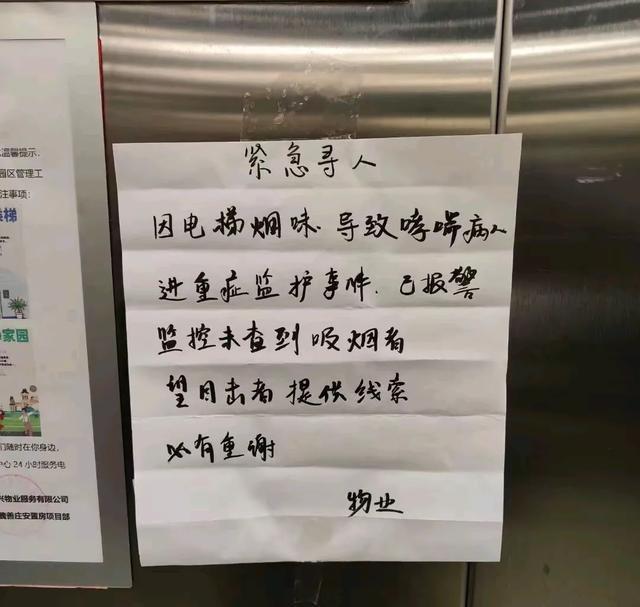 紧急寻人
因电梯烟味.导致哮喘病人
进重症监护事件.已报警
监控未查到吸烟者
望目击者提供线索
必有重谢
物业
温馨提示.
园区管理工
注事项:
家园
们随时在你身边,
中心24小时服务电
兴物业服务有限公司
魏善庄安置房项目部